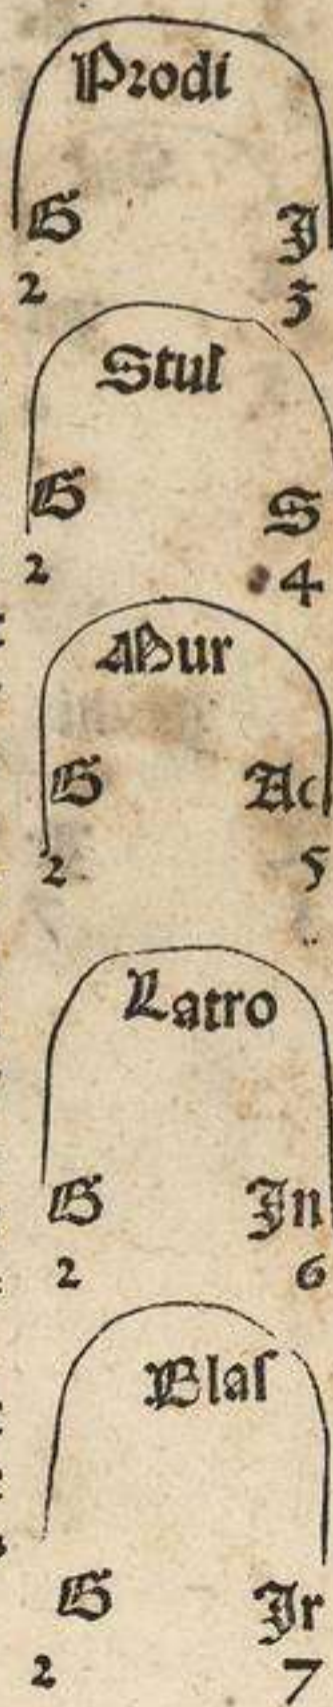 Prodi
G J
2 3
Stul
G S
2 4
Mur
G Ac
2 5
Latro
G In
2 6
Blas
G Ir
2 7